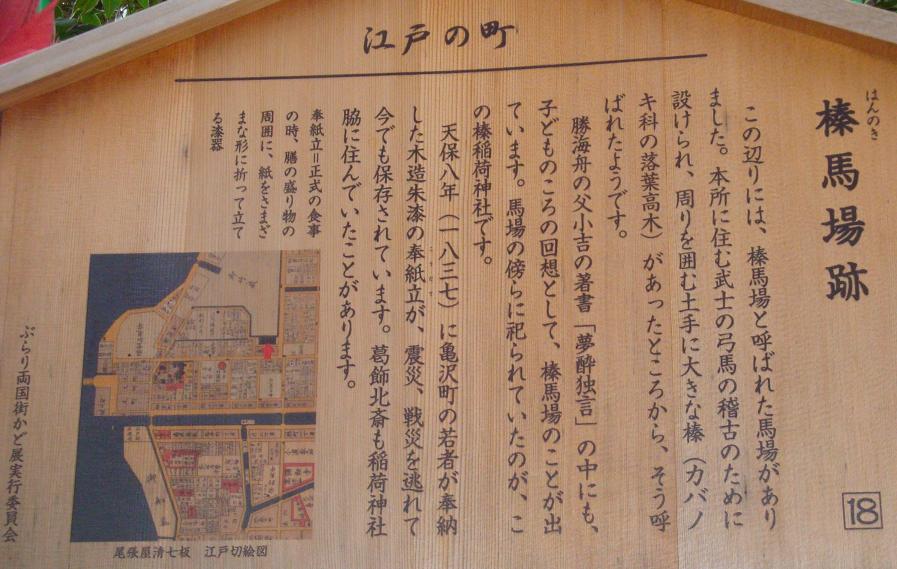 江戸の町
はんのき
榛馬場跡
この辺りには、榛馬場と呼ばれた馬場があり
ました。本所に住む武士の弓馬の稽古のために
設けられ、周りを囲む土手に大きな榛（カバノ
キ科の落葉高木）があったところから、そう呼
ばれたようです。
勝海舟の父小吉の著書「夢酔独言」の中にも、
子どものころの回想として、榛馬場のことが出
ています。馬場の傍らに祀られていたのが、こ
の榛稲荷神社です。
天保八年（一八三七）に亀沢町の若者が奉納
した木造朱漆の奉紙立が、震災、戦災を逃れて
今でも保存されています。葛飾北斎も稲荷神社
脇に住んでいたことがあります。
奉紙立＝正式の食事
の時、膳の盛り物の
周囲に、紙をさまざ
まな形に折って立て
る漆器
尾張屋清七板　江戸切絵図
ぶらり両国街かど展実行委員会
18